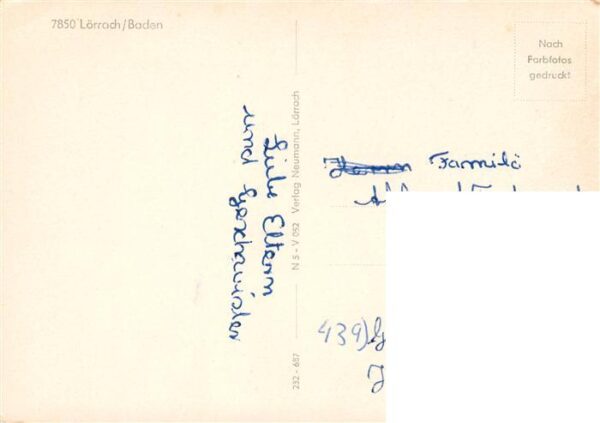 7850 Lörrach/Baden
Nach
Farbfotos
gedruckt
Liebe Eltern
und Geschwister
232 - 687 N 5 - V 052 Verlag Neumann, Lörrach
Herrn Familie
439)